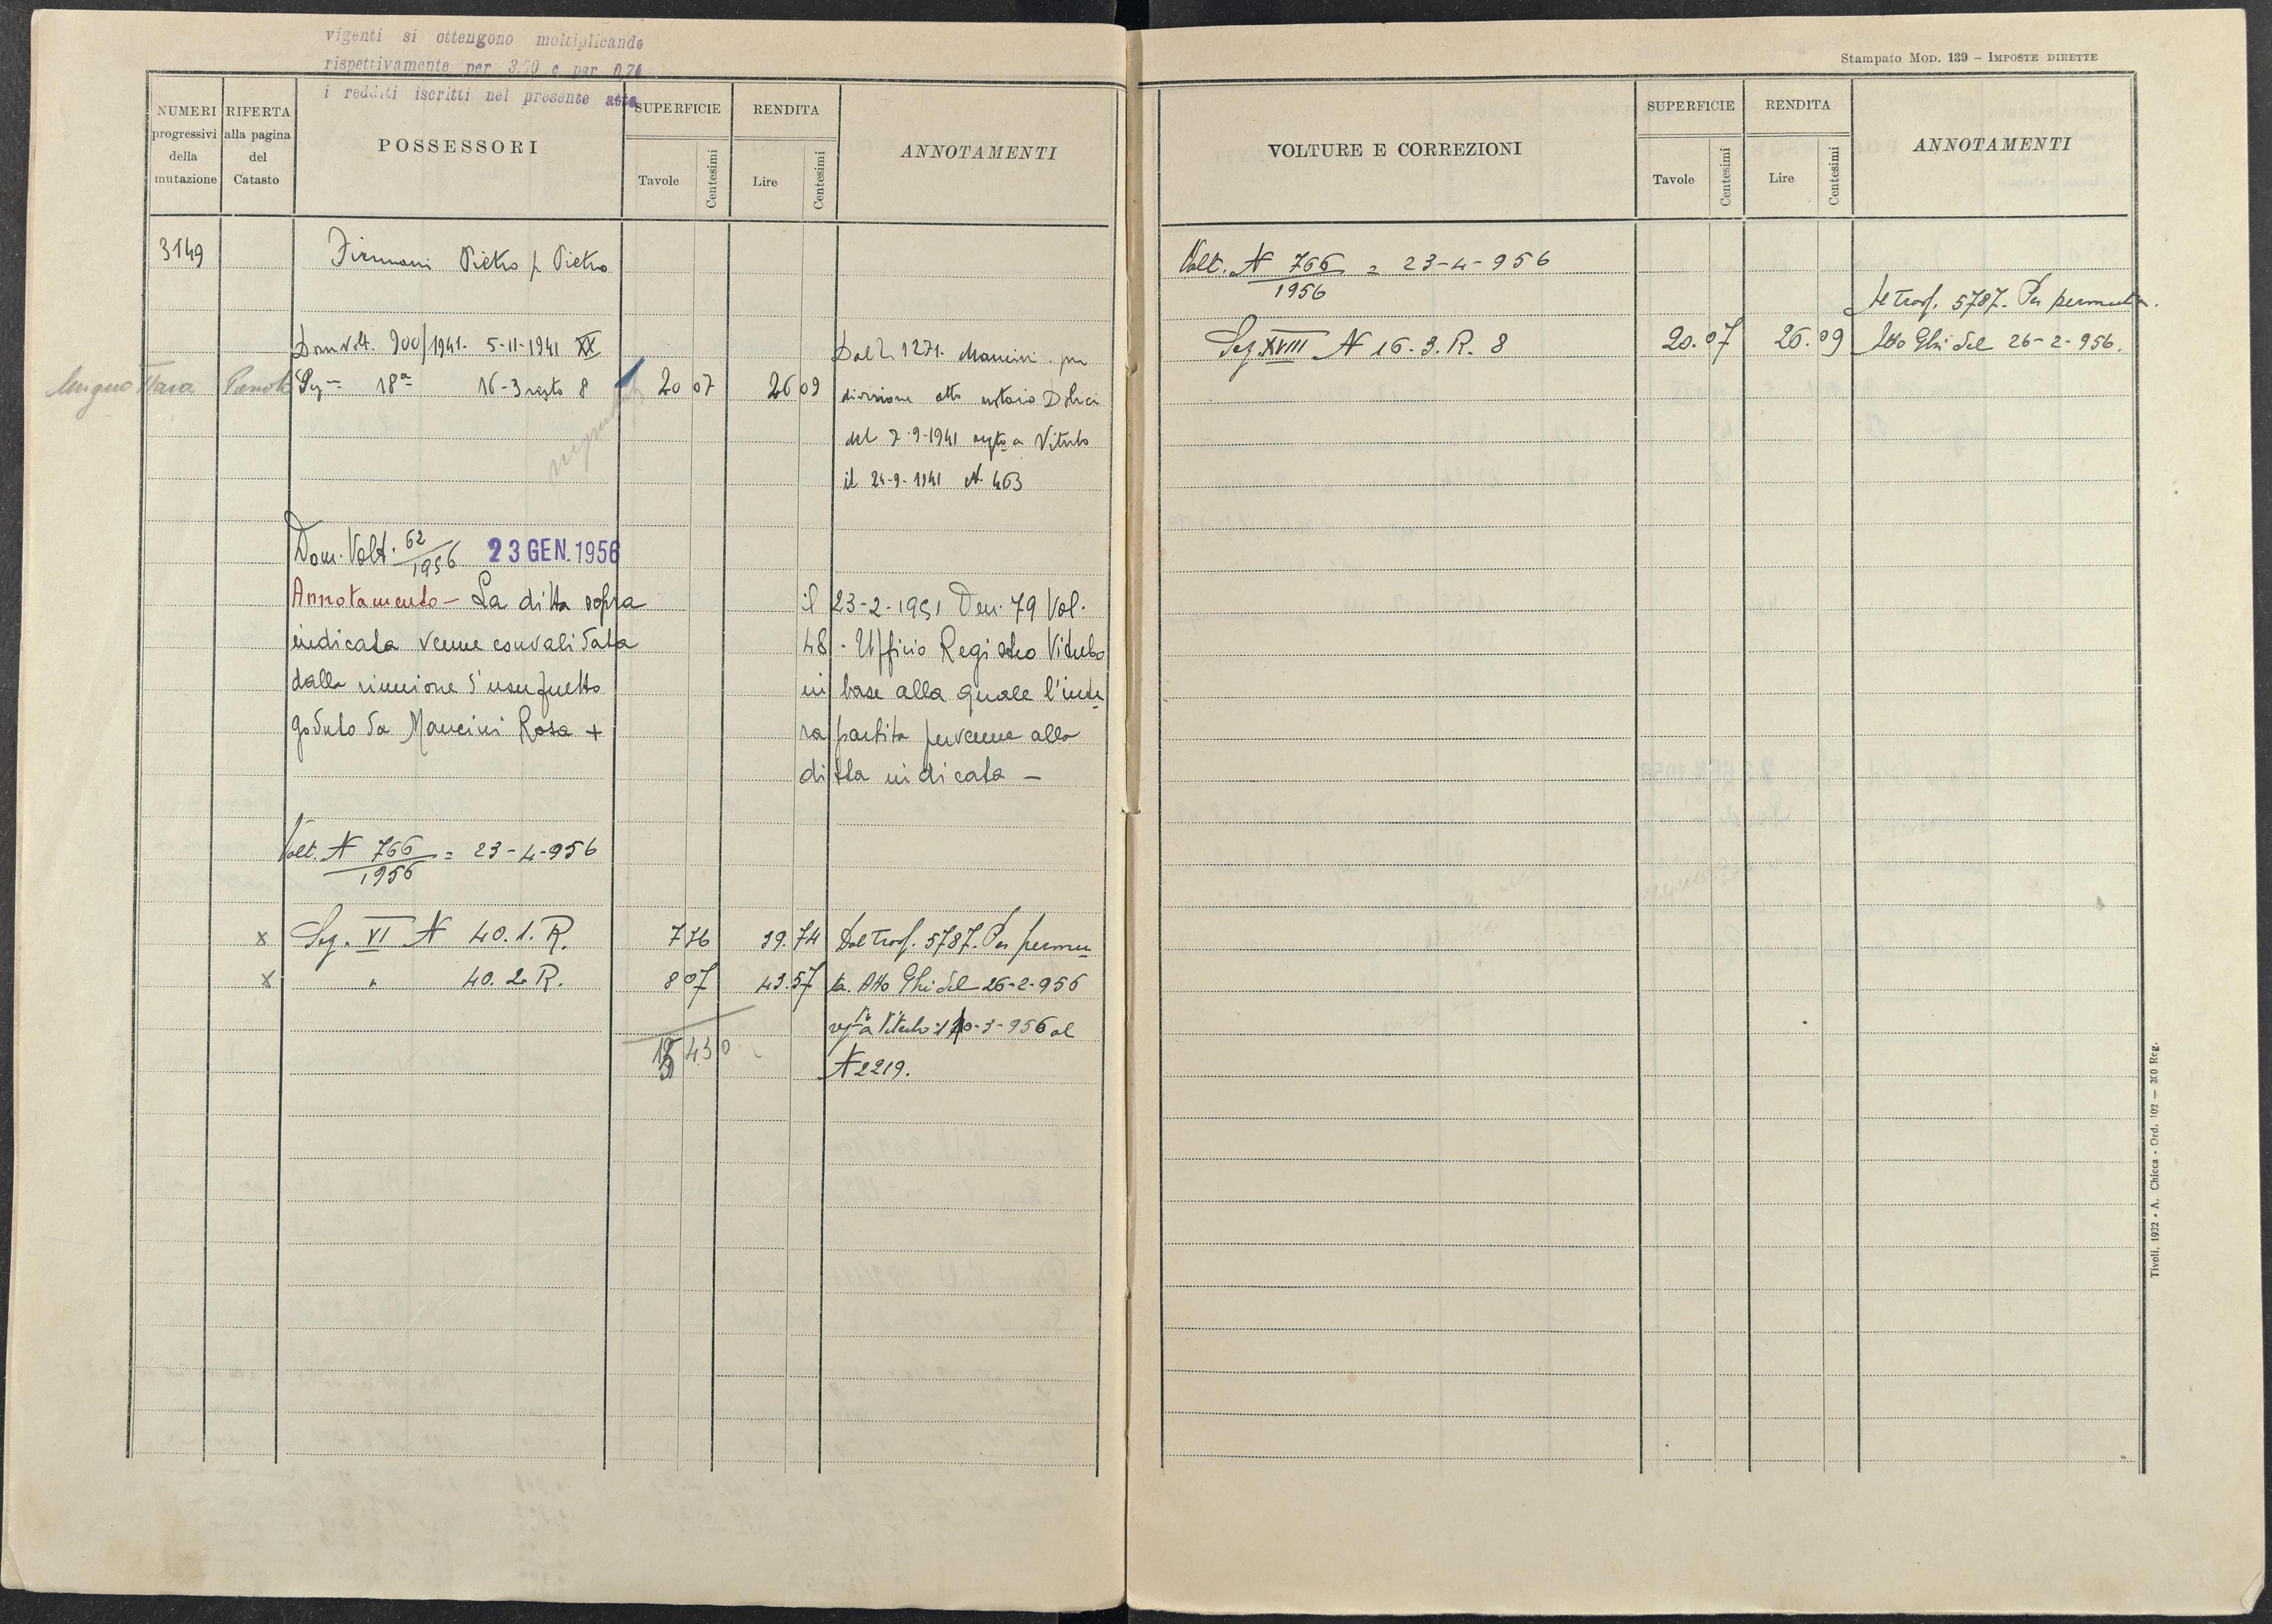 vigenti si ottengono moltiplicando
rispettivamente per 3.00 e per 0,70
i redditi iscritti nel presente atto
NUMERI progressivi della mutazione
RIFERTA alla pagina del Catasto
POSSESSORI
SUPERFICIE
Tavole
Centesimi
RENDITA
Lire
Centesimi
ANNOTAMENTI
3149
Firmani Pietro f Pietro
Dom volt. 900/1941. 5-11-1941 XX
Sez 18a 16-3 resto 8 20 07 26 09
Dal 2. 1271. Mancini per
divisione atto notaio Dolci
del 7-9-1941 regto a Viterbo
il 24-9-1941 N. 463
Dom. Volt. 62/1956 23 GEN. 1956
Annotamento - La ditta sopra
indicata venne convalidata
dalla riunione d'usufrutto
goduto da Mancini Rosa +
il 23-2-1951 Den. 79 Vol.
48 - Ufficio Registro Viterbo
in base alla quale l'inte
ra partita pervenne alla
ditta indicata -
Volt. N 766/1956 = 23-4-956
x Sez. VI N 40.1.R. 7 76 39.74 Dal Trasf. 5787. Per permu
x " 40.2 R. 8 07 43.57 ta. Atto Ghi del 26-2-956
a Viterbo 3-956 al
N 2219.
15 43 0
Stampato MOD. 139 - IMPOSTE DIRETTE
VOLTURE E CORREZIONI
SUPERFICIE
Tavole
Centesimi
RENDITA
Lire
Centesimi
ANNOTAMENTI
Volt. N 766/1956 = 23-4-956
Al Trasf. 5787. Per permuta.
Sez XVIII N 16.3.R.8 20.07 26.09 Atto Ghi del 26-2-956.
Tivoli, 1932 • A. Chicca - Ord. 102 — 200 Reg.